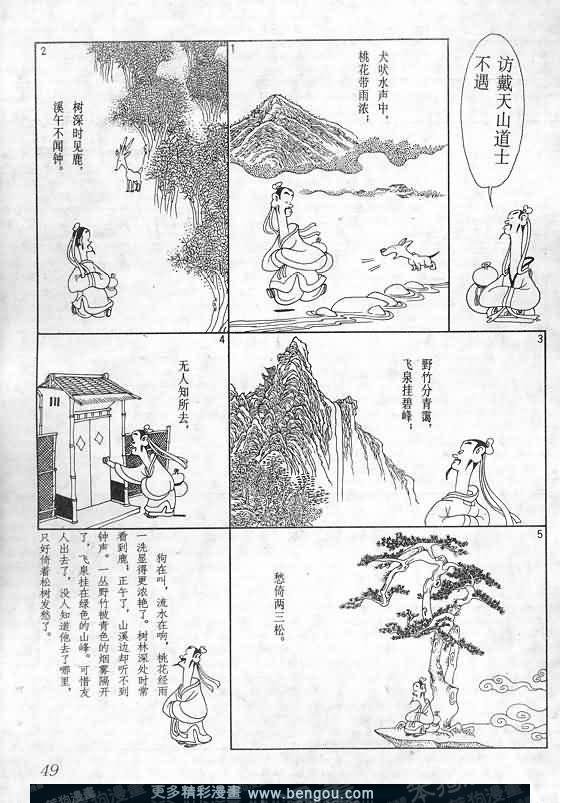 访戴天山道士
不遇
1
犬吠水声中,
桃花带雨浓;
2
树深时见鹿,
溪午不闻钟。
3
野竹分青霭,
飞泉挂碧峰;
4
无人知所去,
5
愁倚两三松。
狗在叫,流水在响,桃花经雨
一洗显得更浓艳了。树林深处时常
看到鹿;正午了,山溪边却听不到
钟声。一丛野竹被青色的烟雾隔开
了,飞泉挂在绿色的山峰。可惜友
人出去了,没人知道他去了哪里,
只好倚着松树发愁了。
49
更多精彩漫畫 www.bengou.com